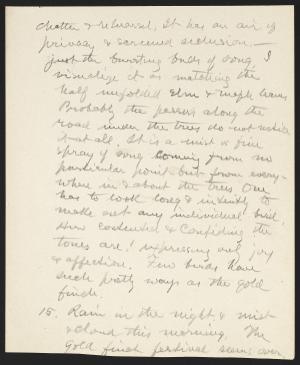 chatter & rehearsal. It has an air of
privacy & screened seclusion, —
just the bursting buds of song. I
visualize it as matching the
half unfolded elm & maple leaves
Probably the passers along the
road under the trees do not notice
it at all. It is a mist or fine
spray of song coming from no
particular point but from every-
where in & about the trees. One
has to look long & intently to
make out any individual bird.
How contented & confiding the
tones are! expressing only joy
& affection. Few birds have
such pretty ways as the gold
finch.
15. Rain in the night & mist
& cloud this morning. The
Gold finch festival seems over